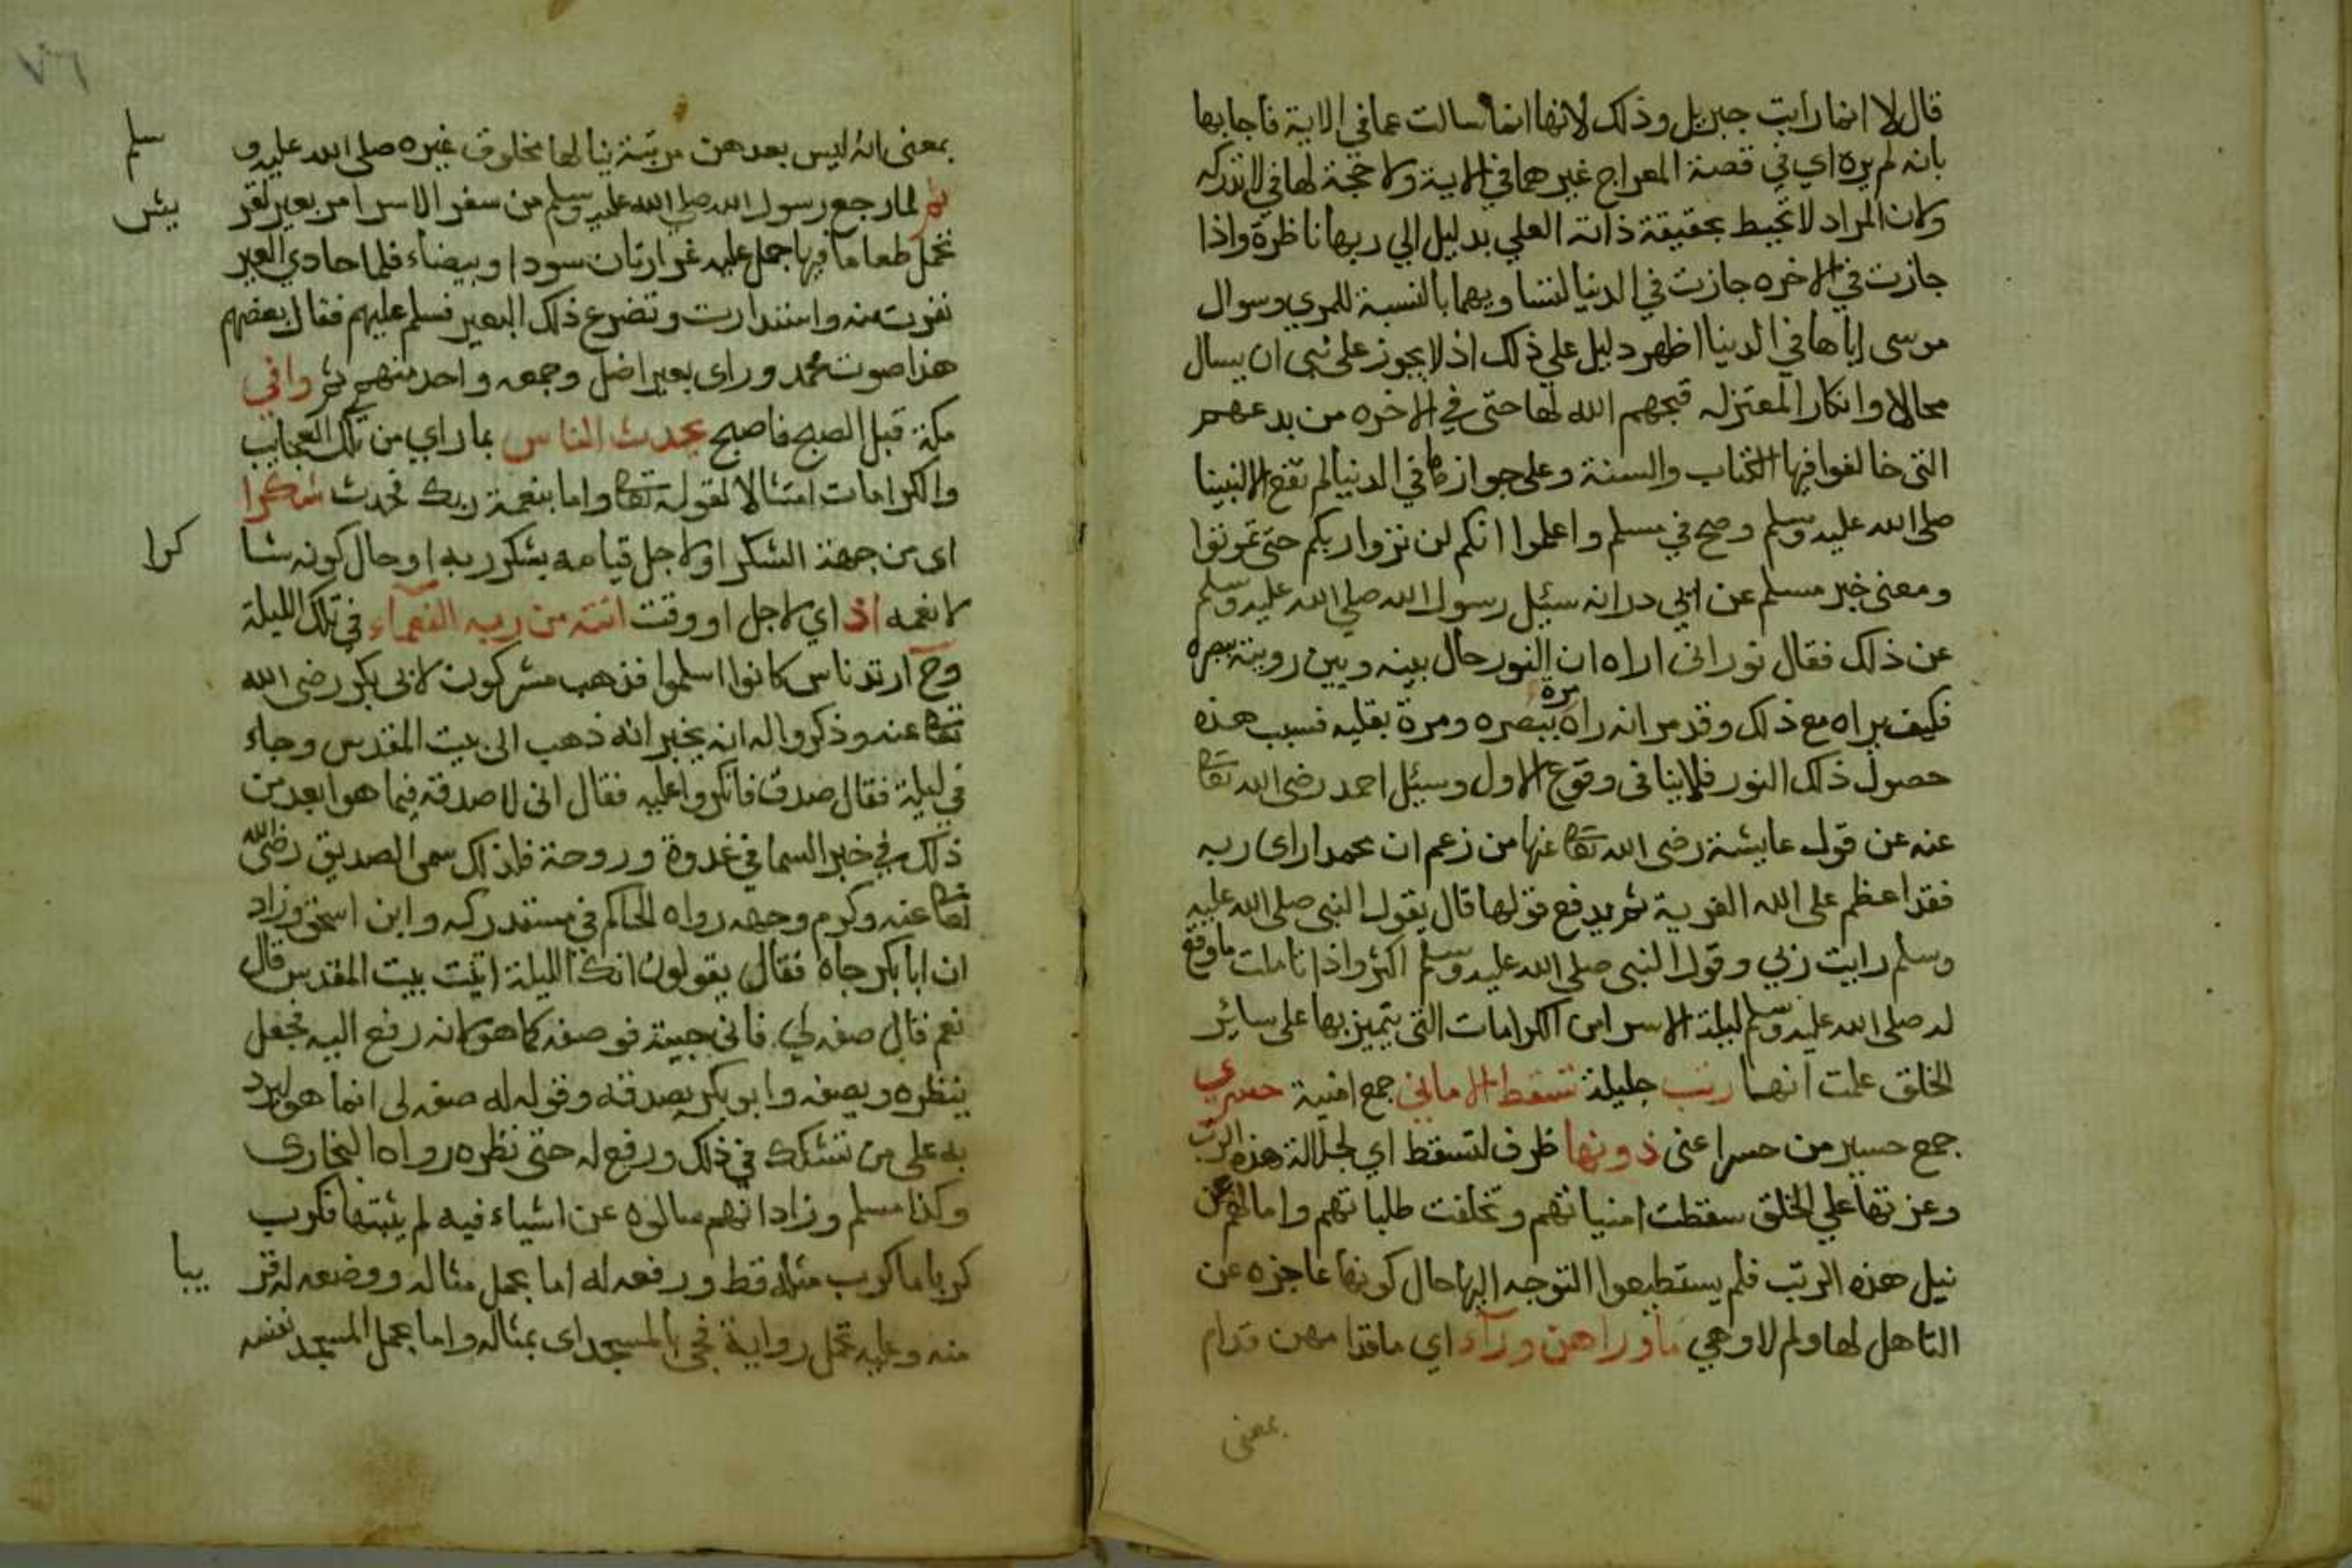 قال لا انما رايت جبريل وذلك لانها انما سالت عما في الاية فاجابها
بانه لم يره اي في قصة المعراج غير ما في الاية ولا حجة لها في لا تدركه
ولان المراد لا تحيط بحقيقة ذاته العلي بدليل الي ربها ناظرة واذا
جازت في الاخره جازت في الدنيا لتساويهما بالنسبة للمري وسوال
موسى اياها في الدنيا اظهر دليل علي ذلك اذ لا يجوز على نبي ان يسال
محالا وانكار المعتزله قبحهم الله لها حتى في الاخره من بدعهم
التي خالفوا فيها الكتاب والسنة وعلى جوازها في الدنيا لم تقع الا لنبينا
صلى الله عليه وسلم وصح في مسلم واعلموا انكم لن تروا ربكم حتى تموتوا
ومعنى خبر مسلم عن ابي در انه سئيل رسول الله صلى الله عليه وسلم
عن ذلك فقال نور اني اراه ان النور حال بينه وبين رويته ببصره
فكيف يراه مع ذلك وقد مر انه راه مرة ببصره ومرة بقلبه فسبب هذه
حصول ذلك النور فلا ينافي وقوع الاول وسئيل احمد رضى الله تعا
عنه عن قول عايشة رضى الله تعا عنها من زعم ان محمدا راى ربه
فقد اعظم على الله الفرية ثم يدفع قولها قال بقول النبى صلى الله عليه
وسلم رايت ربي وقول النبى صلى الله عليه وسلم اكبر واذا تاملت ما وقع
له صلى الله عليه وسلم ليلة الاسرا من الكرامات التي يتميز بها على سائر
الخلق علمت انها رتب جليلة تسقط الاماني جمع امنية حسري
جمع حسير من حسر اعنى دونها ظرف لتسقط اي لجلالة هذه الرتب
وعزتها علي الخلق سقطت امنياتهم وتخلفت طلباتهم وامالهم عن
نيل هذه الرتب فلم يستطيعوا التوجه اليها حال كونها عاجزه عن
التاهل لها ولم لا وهي ما وراهن ورآء اي ما قدامهن قدام
بمعنى
٧٦
بمعنى انه ليس بعد هن مرتبة ينالها مخلوق غيره صلى الله عليه و سلم
ثم لما رجع رسول الله صلى الله عليه وسلم من سفر الاسرا مر بعير لقر يش
تحمل طعاما فيها جمل عليه غرارتان سودا وبيضاء فلما حادي العير
نفرت منه واستدارت وتضرع ذلك البعير فسلم عليهم فقال بعضهم
هذا صوت محمد وراى بعيرا ضل وجمعه واحد منهم ثم وافي
مكة قبل الصبح فاصبح يحدث الناس بما راي من تلك العجايب
والكرامات امتثالا لقوله تعا واما بنعمة ربك فحدث شكرا
اى من جهة الشكر او لاجل قيامه بشكر ربه او حال كونه شا كرا
لانعمه اذ اي لاجل او وقت اتته من ربه النعماء في تلك الليلة
وح ارتد ناس كانوا اسلموا فذهب مشركون لابى بكر رضى الله
تعا عنه وذكروا له انه يخبر انه ذهب الى بيت المقدس وجاء
في ليلة فقال صدق فانكروا عليه فقال انى لاصدقه فيما هو ابعد من
ذلك في خبر السما في غدوة وروحة فلذلك سمى الصديق رضى الله
تعا عنه وكرم وجهه رواه الحاكم في مستدركه وابن اسحق وزاد
ان ابا بكر جاه فقال يقولون انك الليلة اتيت بيت المقدس قال
نعم قال صفه لي فانى جيته فوصفه كما هو كانه رفع اليه فجعل
ينظره ويصفه وابو بكر يصدقه وقوله له صفه لى انما هو ليرد
به على من تشكك في ذلك ورفع له حتى نظره رواه البخارى
وكذا مسلم وزاد انهم سالوه عن اشياء فيه لم يثبتها فكرب
كربا ما كرب مثله قط ورفعه له اما بحمل مثاله ووضعه له قر يبا
منه وعليه تحمل رواية فجى بالمسجد اى بمثاله واما بحمل المسجد نفسه